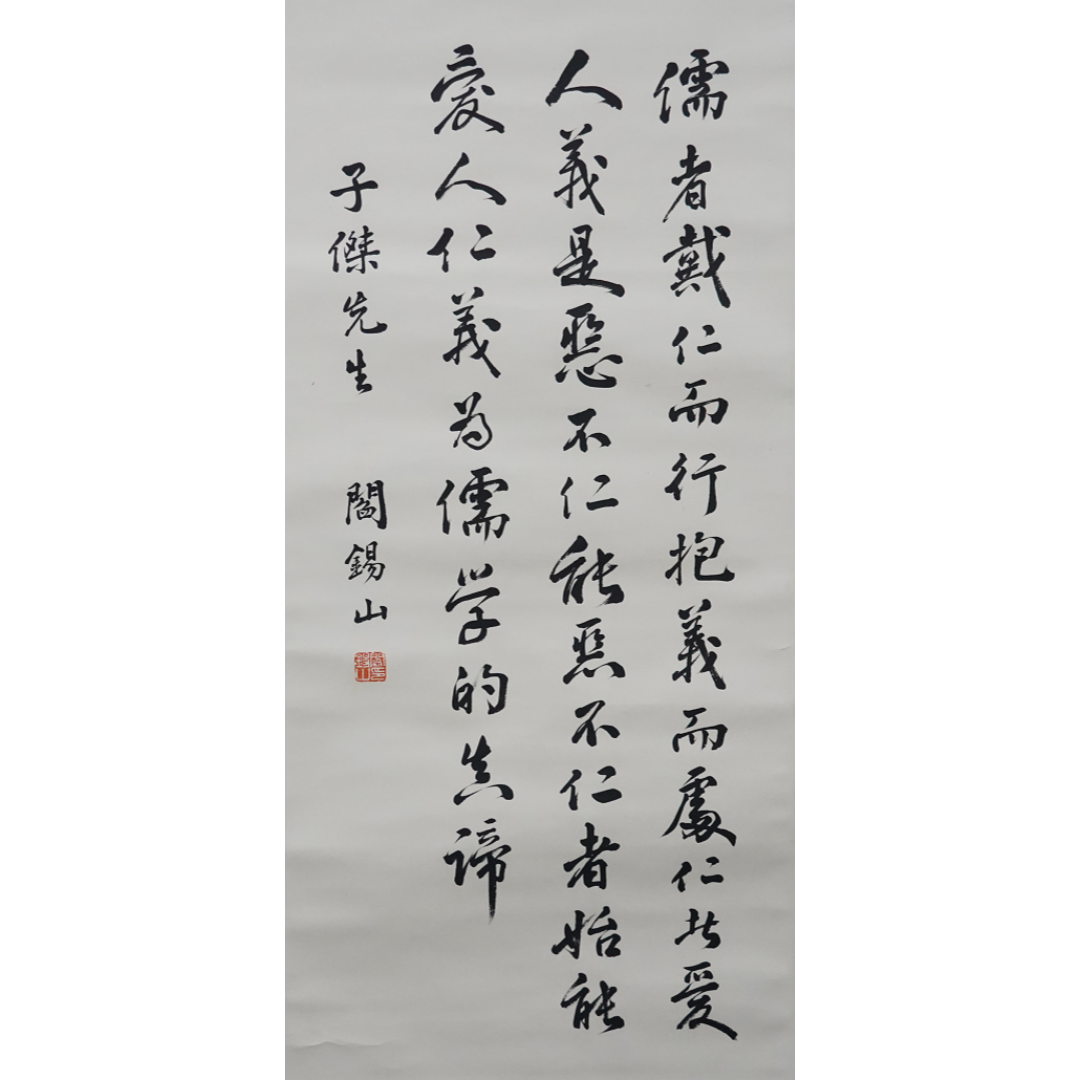 儒者戴仁而行抱義而處仁者愛
人義是惡不仁能惡不仁者始能
愛人仁義為儒学的真諦
子傑先生 閻錫山